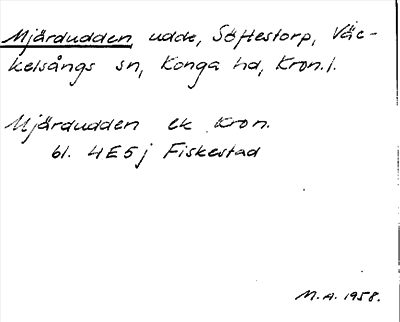 Mjärdudden, udde, Söftestorp, Väc-
kelsångs sn, Konga hd, Kron.l.
Mjärdudden ek Kron.
bl. 4E5j Fiskestad
M.A. 1958.